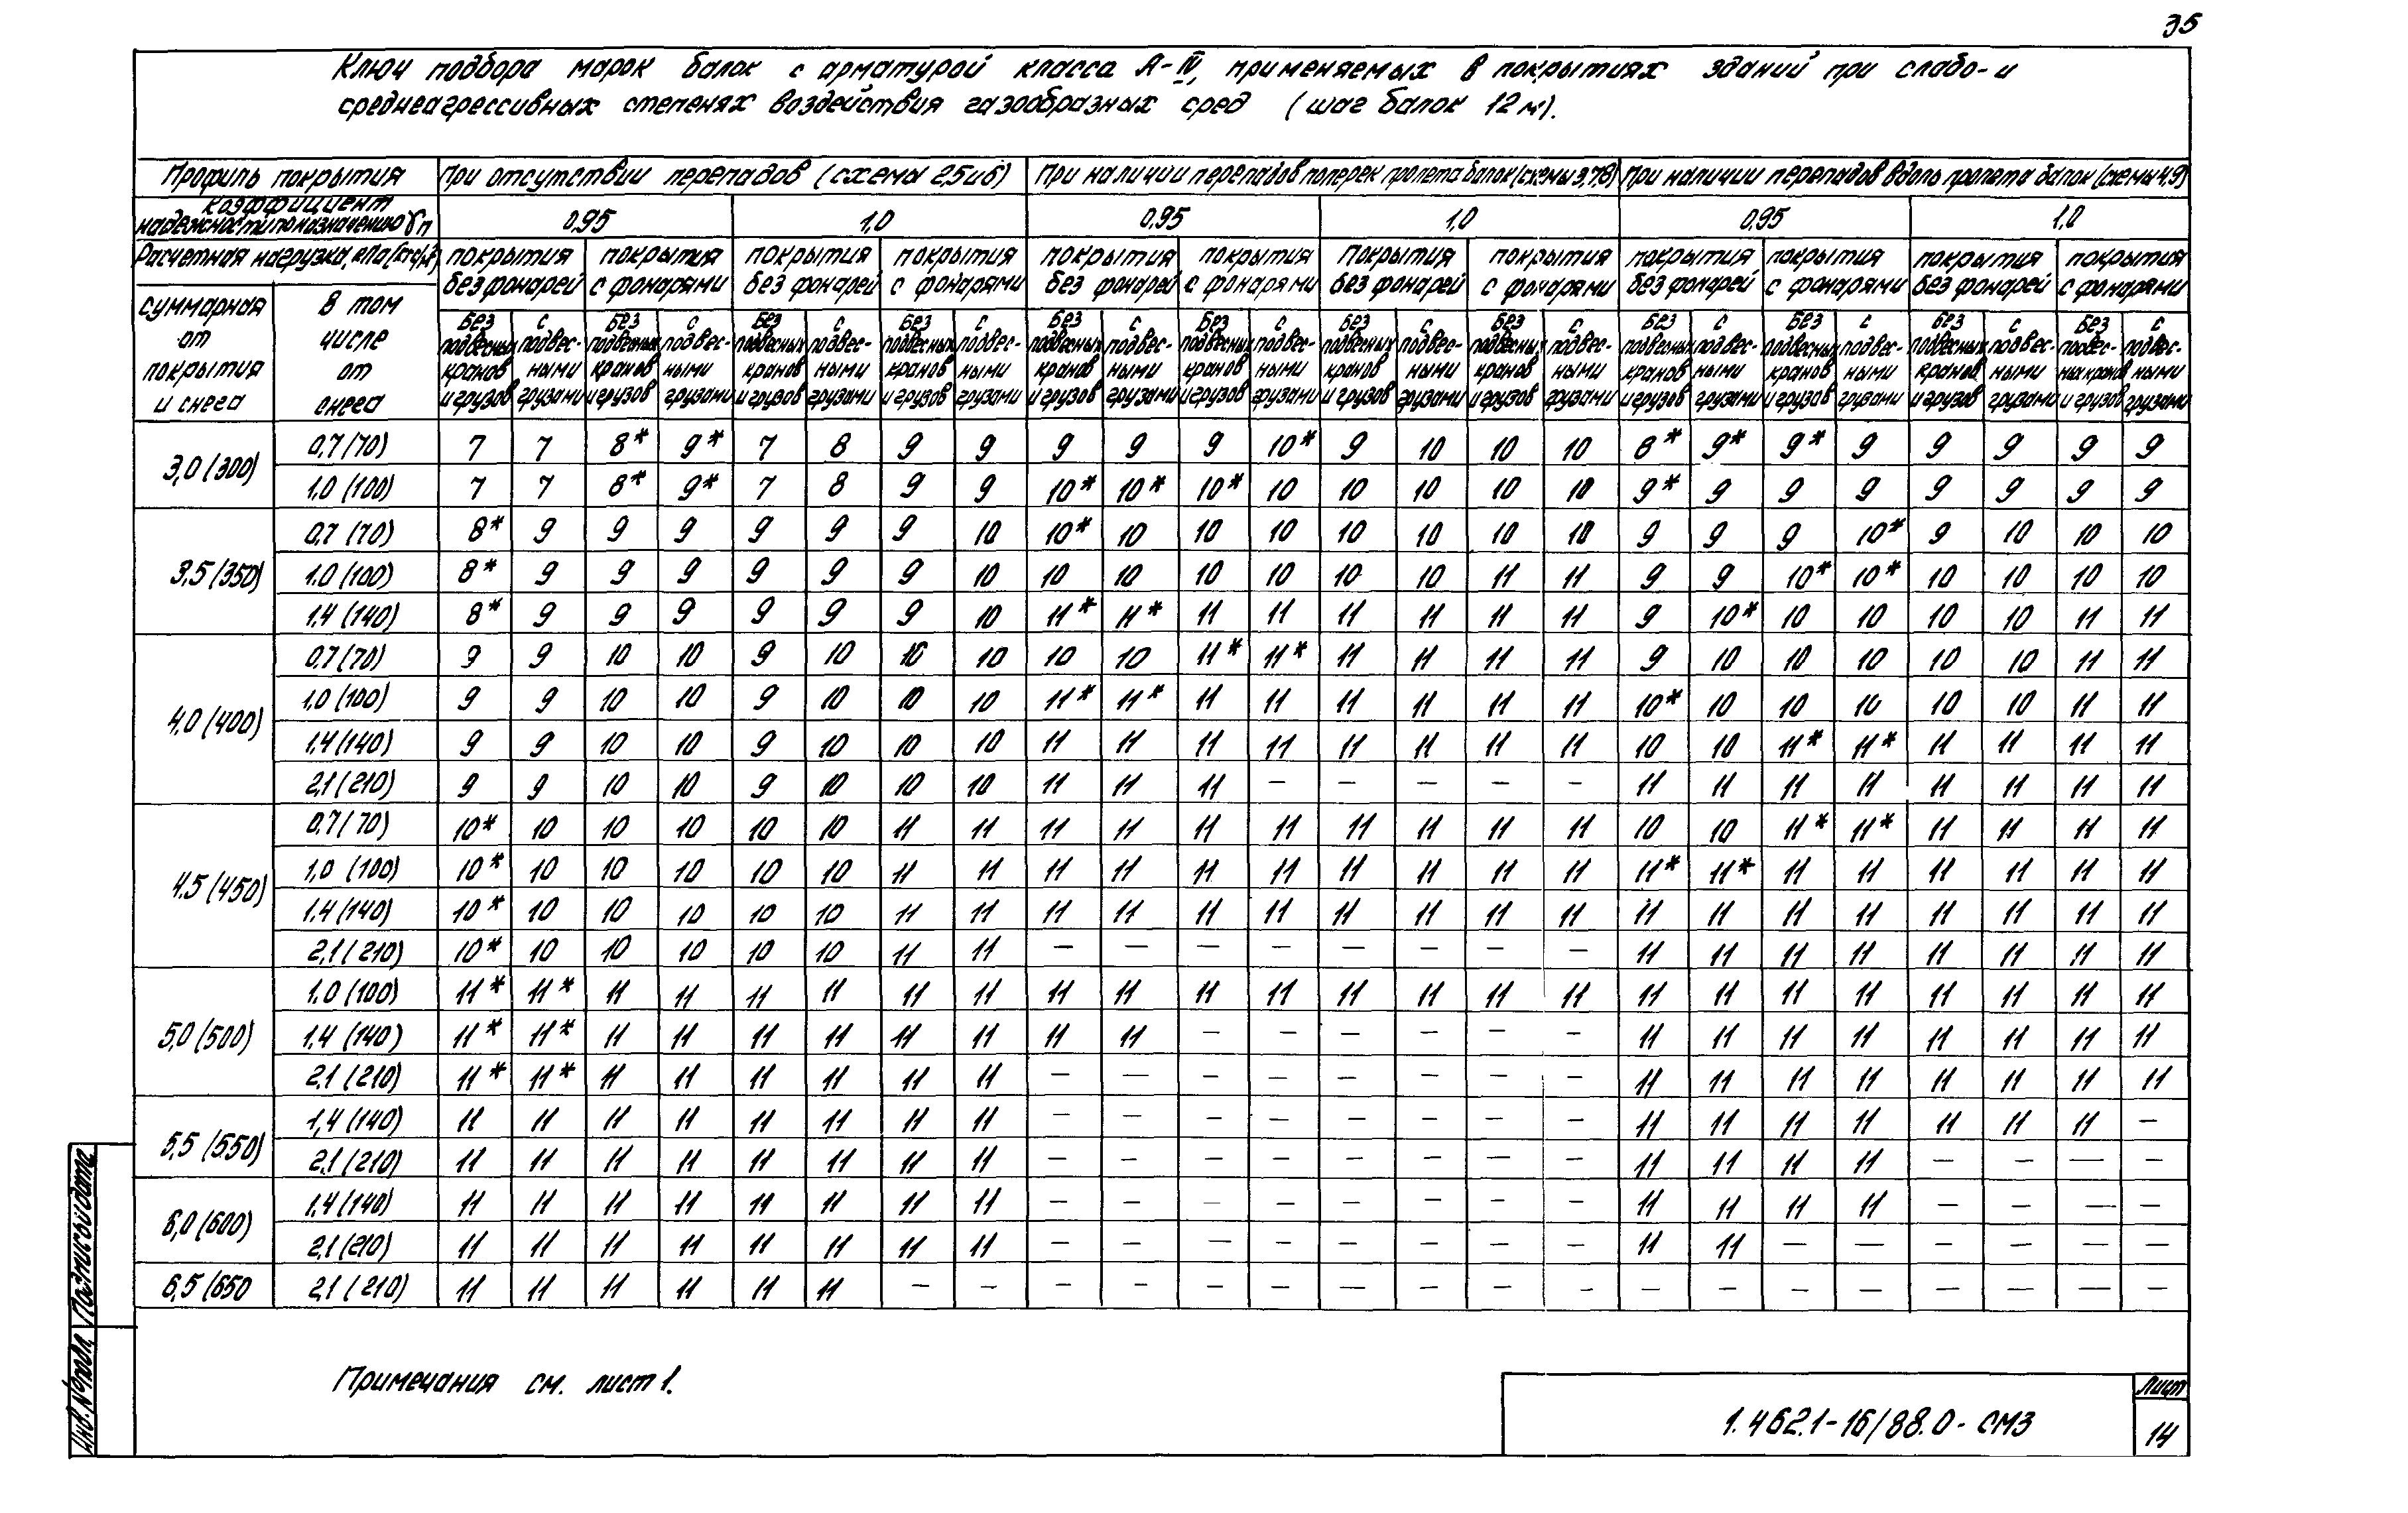 35
Ключ подбора марок балок с арматурой класса А-IV, применяемых в покрытиях зданий при слабо- и
среднеагрессивных степенях воздействия газообразных сред (шаг балок 12 м).
Профиль покрытия При отсутствии перепадов (схемы 2,5 и 6) При наличии перепадов поперек пролета балок (схемы 3,7,8) При наличии перепадов вдоль пролета балок (схемы 4,9)
Коэффициент
надежности по назначению γп 0,95 1,0 0,95 1,0 0,95 1,0
Расчетная нагрузка, кПа (кгс/м²) покрытия покрытия покрытия покрытия покрытия покрытия покрытия покрытия покрытия покрытия покрытия покрытия
без фонарей с фонарями без фонарей с фонарями без фонарей с фонарями без фонарей с фонарями без фонарей с фонарями без фонарей с фонарями
суммарная в том Без с Без с Без с Без с Без с Без с Без с Без с Без с Без с Без с Без с
от числе подвесных подвес- подвесных подвес- подвесных подвес- подвесных подвес- подвесных подвес- подвесных подвес- подвесных подвес- подвесных подвес- подвесных подвес- подвесных подвес- подвесных подвес- подвес- подвес-
покрытия от кранов ными кранов ными кранов ными кранов ными кранов ными кранов ными кранов ными кранов ными кранов ными кранов ными кранов ными ных кранов ными
и снега снега и грузов грузами и грузов грузами и грузов грузами и грузов грузами и грузов грузами и грузов грузами и грузов грузами и грузов грузами и грузов грузами и грузов грузами и грузов грузами и грузов грузами
3,0 (300) 0,7 (70) 7 7 8* 9* 7 8 9 9 9 9 9 10* 9 10 10 10 8* 9* 9* 9 9 9 9 9
1,0 (100) 7 7 8* 9* 7 8 9 9 10* 10* 10* 10 10 10 10 10 9* 9 9 9 9 9 9 9
3,5 (350) 0,7 (70) 8* 9 9 9 9 9 9 10 10* 10 10 10 10 10 10 10 9 9 9 10* 9 10 10 10
1,0 (100) 8* 9 9 9 9 9 9 10 10 10 10 10 10 10 11 11 9 9 10* 10* 10 10 10 10
1,4 (140) 8* 9 9 9 9 9 9 10 11* 11* 11 11 11 11 11 11 9 10* 10 10 10 10 11 11
4,0 (400) 0,7 (70) 9 9 10 10 9 10 10 10 10 10 11* 11* 11 11 11 11 9 10 10 10 10 10 11 11
1,0 (100) 9 9 10 10 9 10 10 10 11* 11* 11 11 11 11 11 11 10* 10 10 10 10 10 11 11
1,4 (140) 9 9 10 10 9 10 10 10 11 11 11 11 11 11 11 11 10 10 11* 11* 11 11 11 11
2,1 (210) 9 9 10 10 9 10 10 10 11 11 11 — — — — — 11 11 11 11 11 11 11 11
4,5 (450) 0,7 (70) 10* 10 10 10 10 10 11 11 11 11 11 11 11 11 11 11 10 10 11* 11* 11 11 11 11
1,0 (100) 10* 10 10 10 10 10 11 11 11 11 11 11 11 11 11 11 11* 11* 11 11 11 11 11 11
1,4 (140) 10* 10 10 10 10 10 11 11 11 11 11 11 11 11 11 11 11 11 11 11 11 11 11 11
2,1 (210) 10* 10 10 10 10 10 11 11 — — — — — — — — 11 11 11 11 11 11 11 11
5,0 (500) 1,0 (100) 11* 11* 11 11 11 11 11 11 11 11 11 11 11 11 11 11 11 11 11 11 11 11 11 11
1,4 (140) 11* 11* 11 11 11 11 11 11 11 11 — — — — — — 11 11 11 11 11 11 11 11
2,1 (210) 11* 11* 11 11 11 11 11 11 — — — — — — — — 11 11 11 11 11 11 11 11
5,5 (550) 1,4 (140) 11 11 11 11 11 11 11 11 — — — — — — — — 11 11 11 11 11 11 11 —
2,1 (210) 11 11 11 11 11 11 11 11 — — — — — — — — 11 11 11 11 — — — —
6,0 (600) 1,4 (140) 11 11 11 11 11 11 11 11 — — — — — — — — 11 11 11 11 — — — —
2,1 (210) 11 11 11 11 11 11 11 11 — — — — — — — — 11 11 — — — — — —
6,5 (650 2,1 (210) 11 11 11 11 11 11 — — — — — — — — — — — — — — — — — —
Примечания см. лист 1.
1.462.1-16/88.0-СМ3
Лист
14
Инв. № подл. Подпись и дата